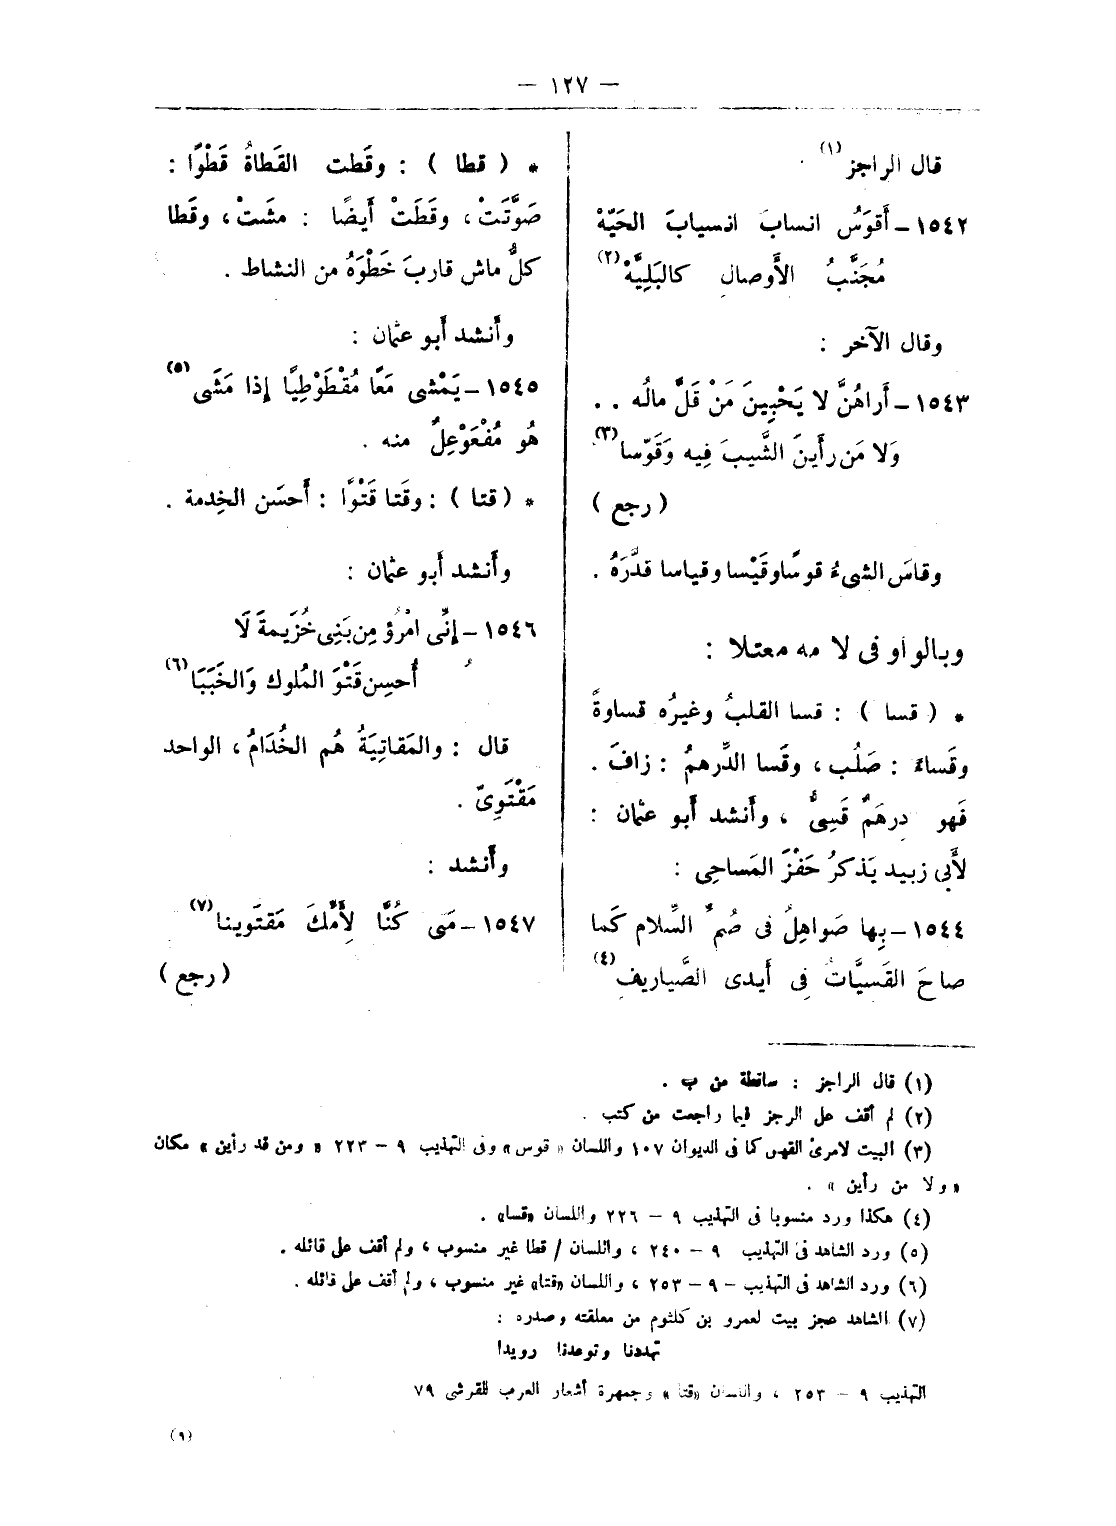 — ١٢٧ —
قال الراجز (١) .
١٥٤٢ – أَقوَسُ انسابَ انسيابَ الحَيَّهْ
مُجَنَّبُ الأَوصال كالبَلِيَّهْ (٢)
وقال الآخر :
١٥٤٣ – أَراهُنَّ لا يَحْبِينَ مَنْ قَلَّ مالُه . .
وَلا مَن رأَينَ الشَّيبَ فِيه وَقَوّسا (٣)
( رجع )
وقاسَ الشىءُ قوسًا وقَيْسا وقياسا قدَّرَهُ .
وبالواو فى لامه معتلا :
* ( قسا ) : قسا القلبُ وغيرُه قساوةً
وقَساءً : صَلُب ، وقَسا الدِّرهمُ : زافَ .
فَهو دِرهَمٌ قَسِىٌّ ، وأَنشد أَبو عثمان :
لأَبى زبيد يَذكرُ حَفْزَ المَساحِى :
١٥٤٤ – بِها صَواهِلُ فى صُمِّ السِّلام كَما
صاحَ القَسيَّاتُ فِى أَيدى الصَّياريفِ (٤)
* ( قطا ) : وقَطت القَطاةُ قَطْوًا :
صَوَّتَتْ ، وقَطَتْ أَيضًا : مشَتْ ، وقَطا
كلُّ ماش قاربَ خَطْوَهُ من النشاط .
وأَنشد أَبو عثمان :
١٥٤٥ – يَمْشى مَعًا مُقْطَوْطِيًا إِذا مَشَى (٥)
هُو مُفْعَوْعِلٌ منه .
* ( قتا ) : وقَتا قَتْوًا : أَحسَن الخِدمة .
وأَنشد أَبو عثمان :
١٥٤٦ – إِنِّى امْرُؤ مِن بَنِى خُزَيمةَ لَا
أُحسِن قَتْوَ المُلوك وَالخَبَبَا (٦)
قال : والمَقاتِيَةُ هُم الخُدَامُ ، الواحد
مَقْتَوِىّ .
وأَنشد :
١٥٤٧ – مَتى كُنَّا لِأُمِّكَ مَقتَوينا (٧)
( رجع )
(١) قال الراجز : ساقطة من ب .
(٢) لم أقف على الرجز فيما راجعت من كتب .
(٣) البيت لامرئ القيس كما فى الديوان ١٠٧ واللسان « قوس » وفى التهذيب ٩ – ٢٢٣ « ومن قد رأين » مكان
« ولا من رأين » .
(٤) هكذا ورد منسوبا فى التهذيب ٩ – ٢٢٦ واللسان «قسا» .
(٥) ورد الشاهد فى التهذيب ٩ – ٢٤٠ ، واللسان / قطا غير منسوب ، ولم أقف على قائله .
(٦) ورد الشاهد فى التهذيب – ٩ – ٢٥٣ ، واللسان «قتا» غير منسوب ، ولم أقف على قائله .
(٧) الشاهد عجز بيت لعمرو بن كلثوم من معلقته وصدره :
تهددنا وتوعدنا رويدا
التهذيب ٩ – ٢٥٣ ، واللسان «قتا» وجمهرة أشعار العرب للقرشى ٧٩
(٩)